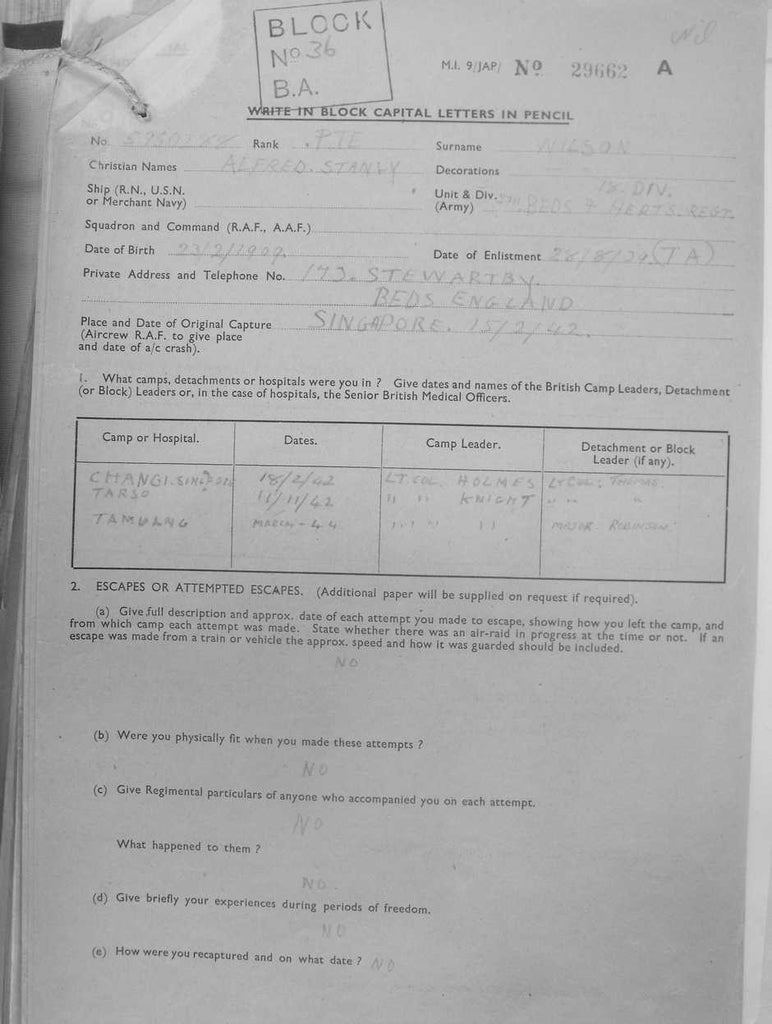 BLOCK
Nº 36
B.A.
Nil
M.I. 9/JAP/ Nº 29662 A
WRITE IN BLOCK CAPITAL LETTERS IN PENCIL
No. Rank PTE Surname WILSON
Christian Names ALFRED. STANLY Decorations
Ship (R.N., U.S.N. or Merchant Navy)
18. DIV.
Unit & Div. (Army) BEDS & HERTS. REGT.
Squadron and Command (R.A.F., A.A.F.)
Date of Birth 23/2/1909. Date of Enlistment (TA)
Private Address and Telephone No. 173. STEWARTBY.
BEDS ENGLAND
Place and Date of Original Capture SINGAPORE. 15/2/42.
(Aircrew R.A.F. to give place
and date of a/c crash).
1. What camps, detachments or hospitals were you in ? Give dates and names of the British Camp Leaders, Detachment
(or Block) Leaders or, in the case of hospitals, the Senior British Medical Officers.
Camp or Hospital. Dates. Camp Leader. Detachment or Block Leader (if any).
CHANGI. 18/2/42 LT. COL. HOLMES LT COL: THOMAS.
TARSO 11/11/42 " " KNIGHT " " "
TAMUANG MARCH - 44 " " " " MAJOR ROBINSON.
2. ESCAPES OR ATTEMPTED ESCAPES. (Additional paper will be supplied on request if required).
(a) Give full description and approx. date of each attempt you made to escape, showing how you left the camp, and
from which camp each attempt was made. State whether there was an air-raid in progress at the time or not. If an
escape was made from a train or vehicle the approx. speed and how it was guarded should be included.
NO
(b) Were you physically fit when you made these attempts ?
NO
(c) Give Regimental particulars of anyone who accompanied you on each attempt.
NO
What happened to them ?
NO.
(d) Give briefly your experiences during periods of freedom.
NO
(e) How were you recaptured and on what date ? NO